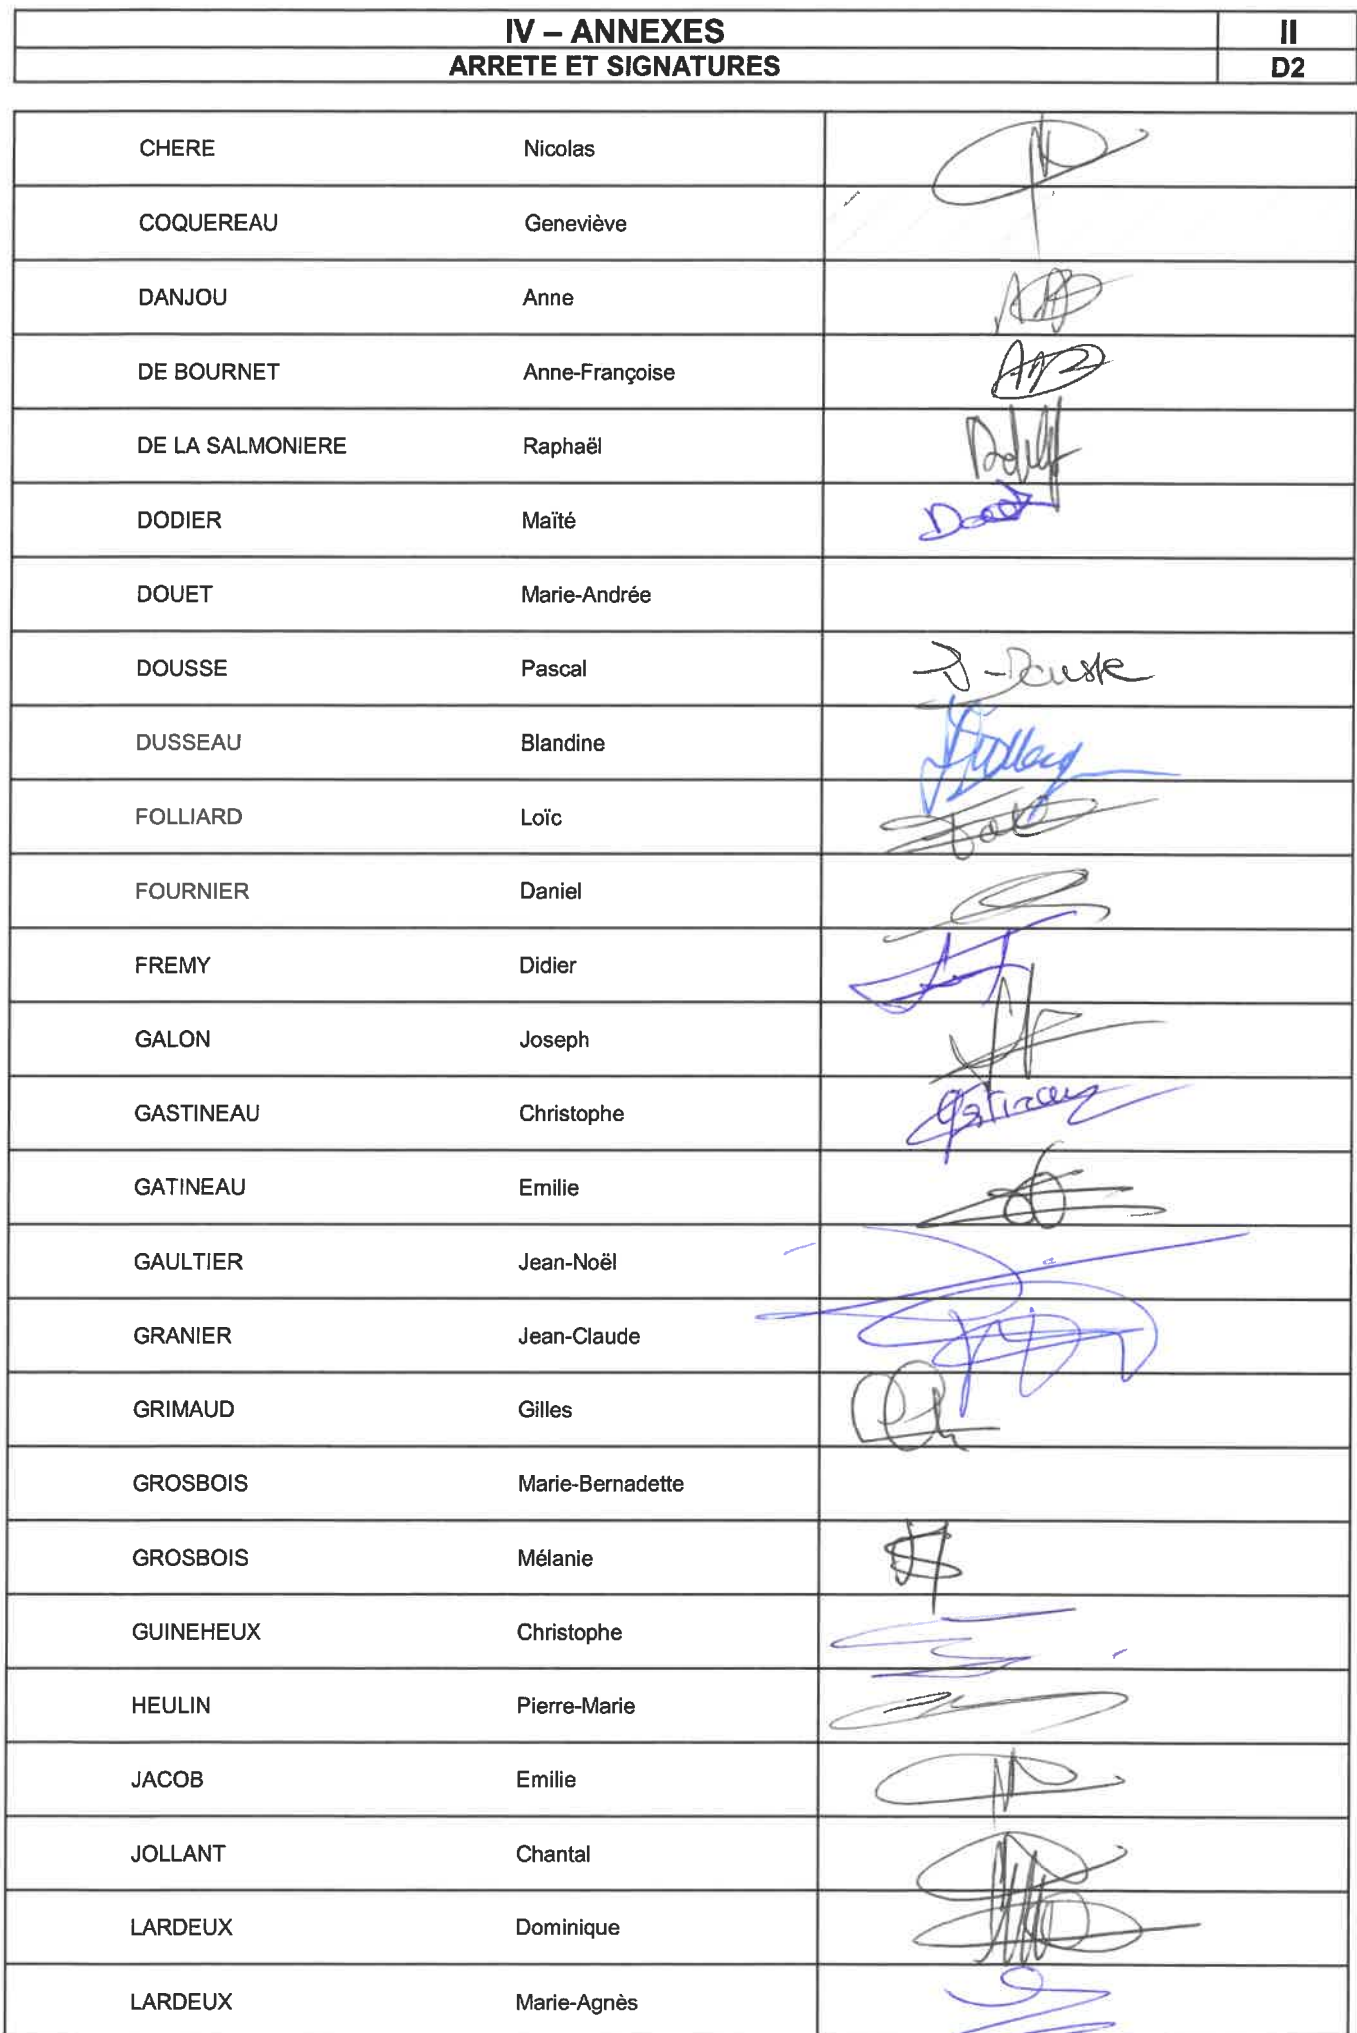 IV – ANNEXES II
ARRETE ET SIGNATURES D2
CHERE Nicolas
COQUEREAU Geneviève
DANJOU Anne
DE BOURNET Anne-Françoise
DE LA SALMONIERE Raphaël
DODIER Maïté
DOUET Marie-Andrée
DOUSSE Pascal
DUSSEAU Blandine
FOLLIARD Loïc
FOURNIER Daniel
FREMY Didier
GALON Joseph
GASTINEAU Christophe
GATINEAU Emilie
GAULTIER Jean-Noël
GRANIER Jean-Claude
GRIMAUD Gilles
GROSBOIS Marie-Bernadette
GROSBOIS Mélanie
GUINEHEUX Christophe
HEULIN Pierre-Marie
JACOB Emilie
JOLLANT Chantal
LARDEUX Dominique
LARDEUX Marie-Agnès